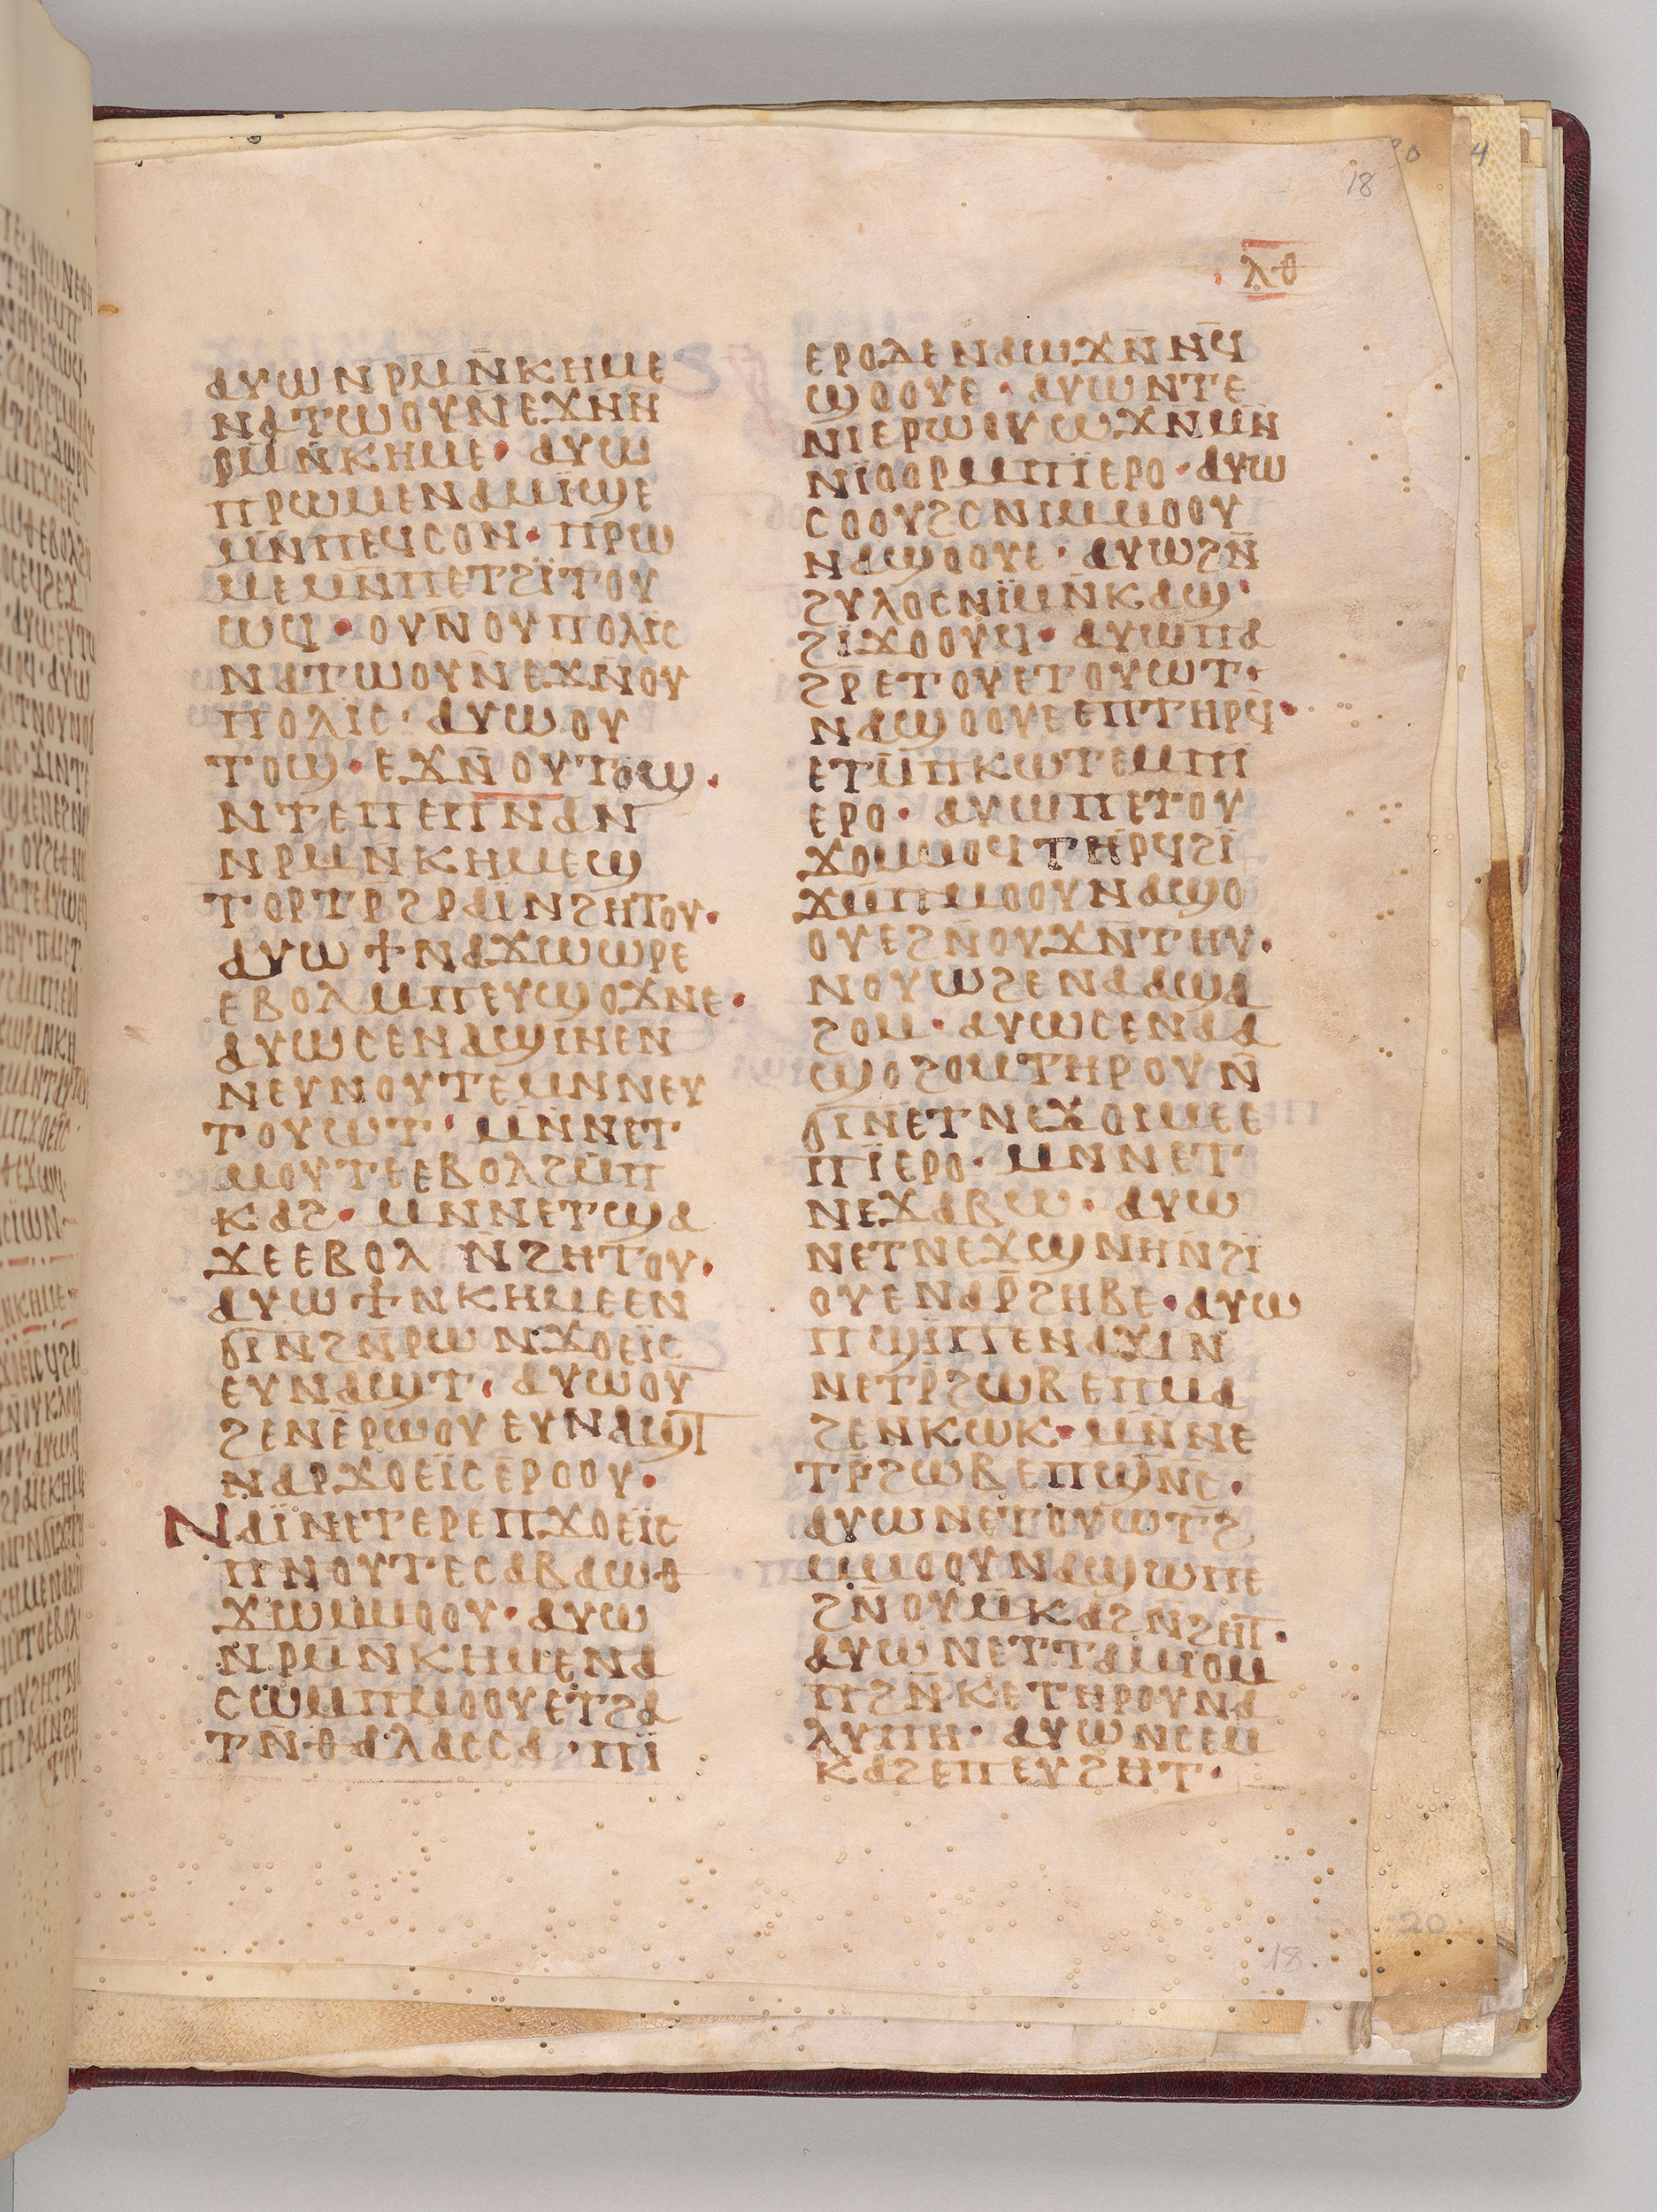 18
ⲗⲑ
ⲁⲩⲱⲛⲣⲙ̄ⲛ̄ⲕⲏⲙⲉ
ⲛⲁⲧⲱⲟⲩⲛⲉϫⲛ̄ⲛ̄
ⲣⲙ̄ⲛ̄ⲕⲏⲙⲉ· ⲁⲩⲱ
ⲡⲣⲱⲙⲉⲛⲁⲙⲓϣⲉ
ⲙⲛ̄ⲡⲉϥⲥⲟⲛ· ⲡⲣⲱ
ⲙⲉⲙⲛ̄ⲡⲉⲧϩⲓ̈ⲧⲟⲩ
ⲱϥ· ⲟⲩⲛ̄ⲟⲩⲡⲟⲗⲓ̈ⲥ
ⲛⲁⲧⲱⲟⲩⲛ̄ⲉϫⲛ̄ⲟⲩ
ⲡⲟⲗⲓ̈ⲥ· ⲁⲩⲱⲟⲩ
ⲧⲟϣ· ⲉϫⲛ̄ⲟⲩⲧⲟϣ·
ⲛⲧⲉⲡⲉⲡ̅ⲛ̅ⲁ̅ⲛ
ⲛⲣⲙ̄ⲛ̄ⲕⲏⲙⲉϣ
ⲧⲟⲣⲧⲣ̄ϩⲣⲁⲓ̈ⲛϩⲏⲧⲟⲩ·
ⲁⲩⲱϯⲛⲁϫⲱⲱⲣⲉ
ⲉⲃⲟⲗⲙ̄ⲡⲉⲩϣⲟϫⲛⲉ·
ⲁⲩⲱⲥⲉⲛⲁϣⲓⲛⲉⲛ
ⲛⲉⲩⲛⲟⲩⲧⲉⲙⲛ̄ⲛⲉⲩ
ⲧⲟⲩⲱⲧ· ⲙⲛ̄ⲛⲉⲧ
ⲙⲟⲩⲧⲉⲉⲃⲟⲗϩⲙ̄ⲡ
ⲕⲁϩ· ⲙⲛ̄ⲛⲉⲧϣⲁ
ϫⲉⲉⲃⲟⲗ ⲛ̄ϩⲏⲧⲟⲩ·
ⲁⲩⲱϯⲛⲕⲏⲙⲉⲉⲛ
ϭⲓⲛϩⲛ̄ⲣⲱⲛϫⲟⲉⲓ̈ⲥ
ⲉⲩⲛⲁϣⲧ· ⲁⲩⲱⲟⲩ
ϩⲉⲛⲉ̄ⲣⲱⲟⲩⲉⲩⲛⲁϣⲧ
ⲛⲁⲣϫⲟⲉⲓ̈ⲥⲉ̄ⲣⲟⲟⲩ·
ⲛⲁⲓ̈ⲛⲉⲧⲉⲣⲉⲡϫⲟⲉⲓ̈ⲥ
ⲡⲛⲟⲩⲧⲉⲥⲁⲃⲁⲱⲑ
ϫⲱⲙⲙⲟⲟⲩ· ⲁⲩⲱ
ⲛⲣⲙ̄ⲛⲕⲏⲙⲉⲛⲁ
ⲥⲱⲙ̄ⲡⲙⲟⲟⲩⲉⲧϩⲁ
ⲧⲛ̄ⲑⲁⲗⲁⲥⲥⲁ· ⲡⲓ̈
ⲉⲣⲟⲇⲉⲛⲁⲱϫⲛ̄ⲛϥ̄
ϣⲟⲟⲩⲉ· ⲁⲩⲱⲛⲧⲉ
ⲛⲓⲉⲣⲱⲟⲩⲱϫⲛ̄ⲙⲛ̄
ⲛⲓ̈ⲟⲟⲣⲙ̄ⲡⲓ̈ⲉⲣⲟ· ⲁⲩⲱ
ⲥⲟⲟⲩϩⲥⲛⲓⲙⲙⲟⲟⲩ
ⲛⲁϣⲟⲟⲩⲉ· ⲁⲩⲱϩⲛ̄
ϩⲩⲗⲟⲥⲛⲓ̈ⲙⲛ̄ⲕⲁϣ·
ϩⲓ̈ϫⲟⲟⲩϥ· ⲁⲩⲱⲡⲁ
ϩⲣ̄ⲉⲧⲟⲩⲉⲧⲟⲩⲱⲧ·
ⲛⲁϣⲟⲟⲩⲉⲉⲡⲧⲏⲣϥ̄·
ⲉⲧⲙ̄ⲡⲕⲱⲧⲉⲙⲡⲓ
ⲉⲣⲟ· ⲁⲩⲱⲡⲉⲧⲟⲩ
ϫⲟⲙⲙⲟϥⲧⲏⲣϥϩⲓ̈
ϫⲙ̄ⲡⲙⲟⲟⲩⲛⲁϣⲟ
ⲟⲩⲉϩⲛ̄ⲟⲩϫⲛⲧⲏⲩ·
ⲛⲟⲩⲱϩⲉⲛⲁⲁϣⲁ
ϩⲟⲙ· ⲁⲩⲱⲥⲉⲛⲁⲁ
ϣⲟϩⲟⲙⲧⲏⲣⲟⲩⲛ̄
ϭⲓⲛⲉⲧⲛⲉϫⲟⲓⲙⲉⲉ
ⲡⲓ̈ⲉⲣⲟ· ⲙⲛⲛⲉⲧ
ⲛⲉϫⲁⲃⲱ· ⲁⲩⲱ
ⲛⲉⲧⲛⲉϫϣⲛⲏⲛ̄ϩⲓ̈
ⲟⲩⲉⲛⲁⲣ̄ϩⲏⲃⲉ· ⲁⲩⲱ
ⲡϣⲓ̈ⲡⲉⲛⲁϫⲓⲛ
ⲛⲉⲧⲣ̄ϩⲱⲃⲉⲡⲙⲁ
ϩⲉⲛⲕⲱⲕ· ⲙⲛ̄ⲛⲉ
ⲧⲣ̄ϩⲱⲃⲉⲡϣⲛ̄ⲥ·
ⲁⲩⲱⲛⲉⲧⲟⲩⲱⲧϩ
ⲙⲙⲟⲟⲩⲛⲁϣⲱⲡⲉ
ϩⲛ̄ⲟⲩⲙ̄ⲕⲁϩⲛ̄ϩⲏⲧ·
ⲁⲩⲱⲛⲉⲧⲧⲁⲙⲓⲟⲙ
ⲡϩⲛ̄ⲕⲉⲧⲏⲣⲟⲩⲛⲁ
ⲗⲩⲡⲏ· ⲁⲩⲱⲛⲥⲉⲙ
ⲕⲁϩⲉⲡⲉⲩϩⲏⲧ·
18
20